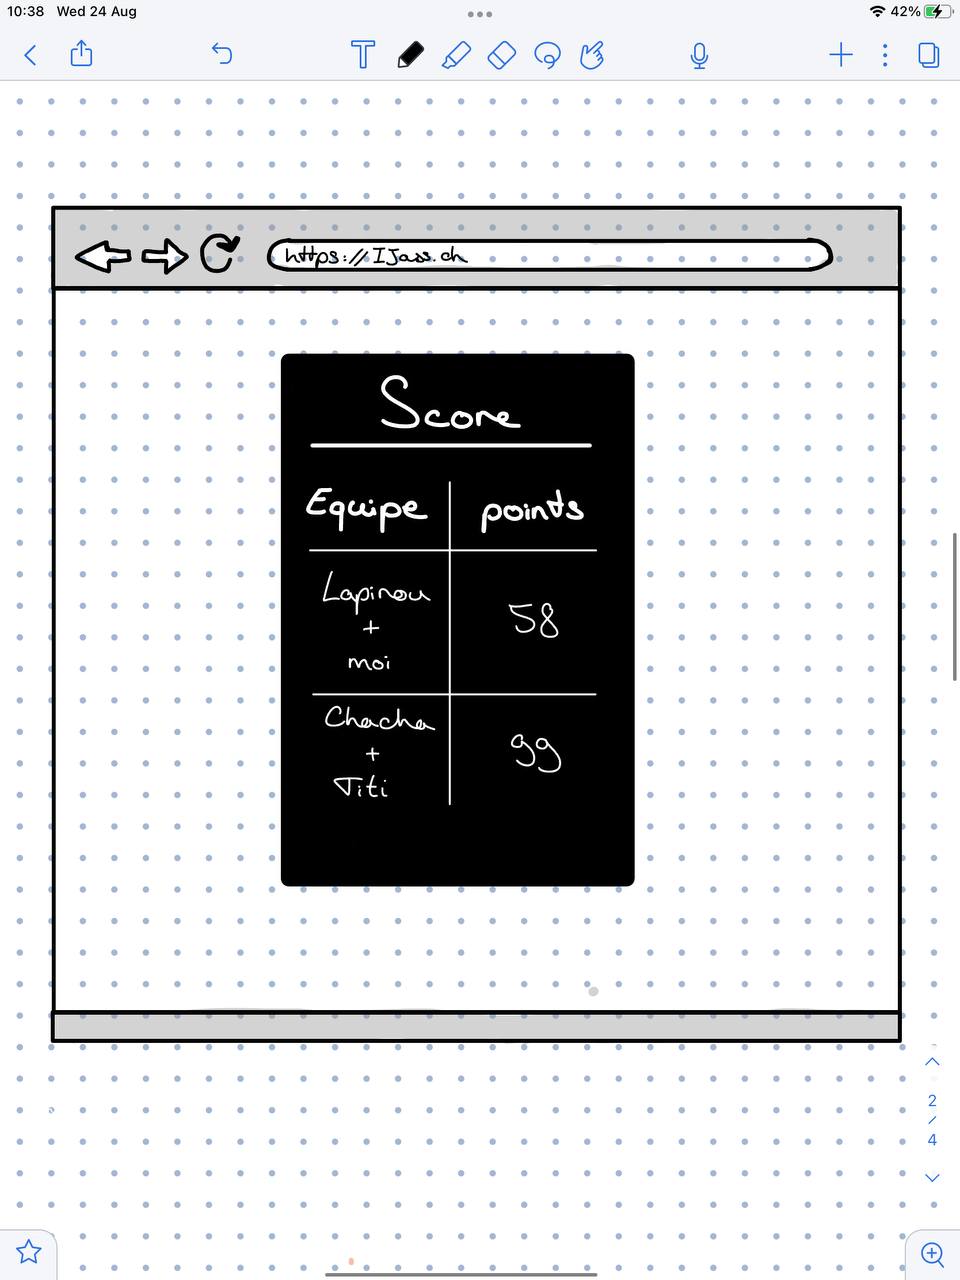 10:38 Wed 24 Aug
42%
https://IJass.ch
Score
Equipe points
Lapinou
+
moi
58
Chacha
+
Titi
99
2
/
4